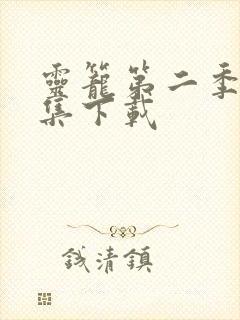 靈籠第二季
集下載
錢清鎮